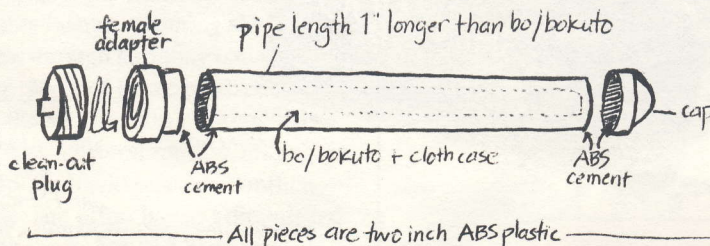 female
adapter
pipe length 1" longer than bo/bokuto
cap
clean-out
plug
ABS
cement
bo/bokuto + cloth case
ABS
cement
All pieces are two inch ABS plastic